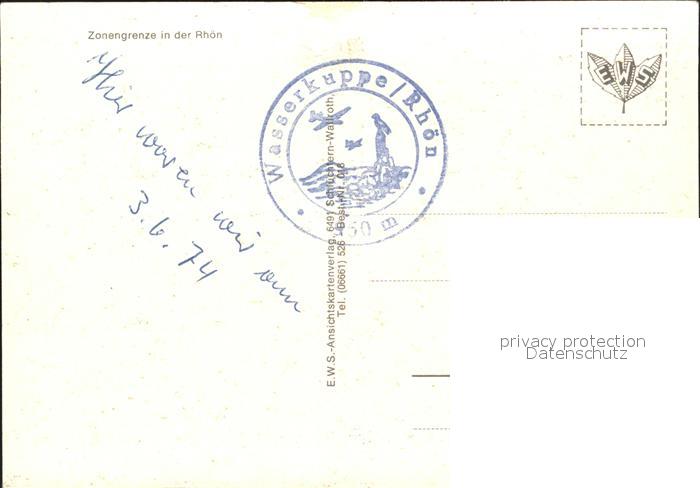 Zonengrenze in der Rhön
Hier waren wir am
3.6.74
Wasserkuppe/Rhön
950 m
E.W.S.-Ansichtskartenverlag, 6491 Schlüchtern-Wallroth,
Tel. (06661) 526 Best.-Nr. 018
EWS
privacy protection
Datenschutz